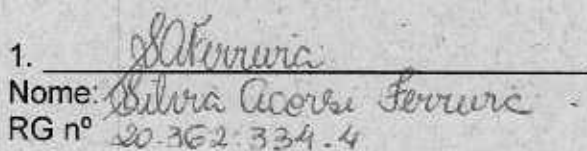 1. SAFerreira
Nome: Silvia Acorsi Ferreira
RG nº 20.362.334.4